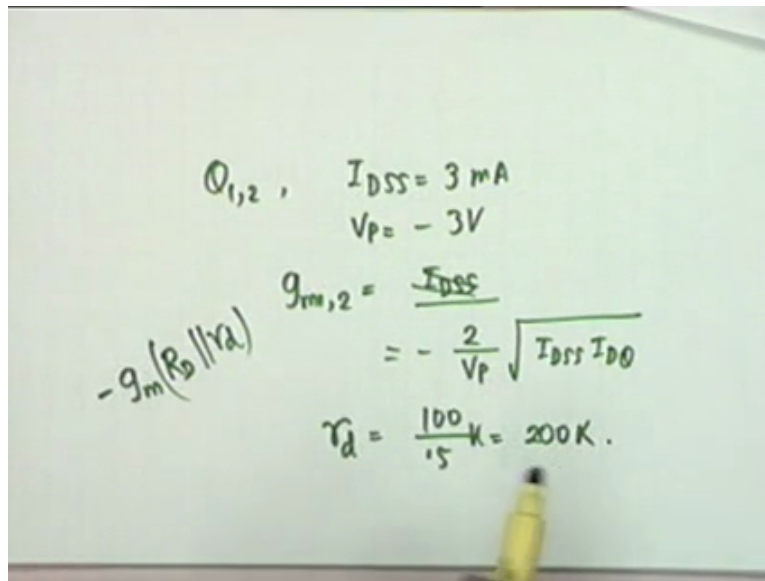 Q1,2 , IDSS = 3 mA
VP = - 3V
gm1,2 = IDSS
= - 2/VP √IDSS IDQ
-gm(RD||rd)
rd = 100/.5 K = 200K.